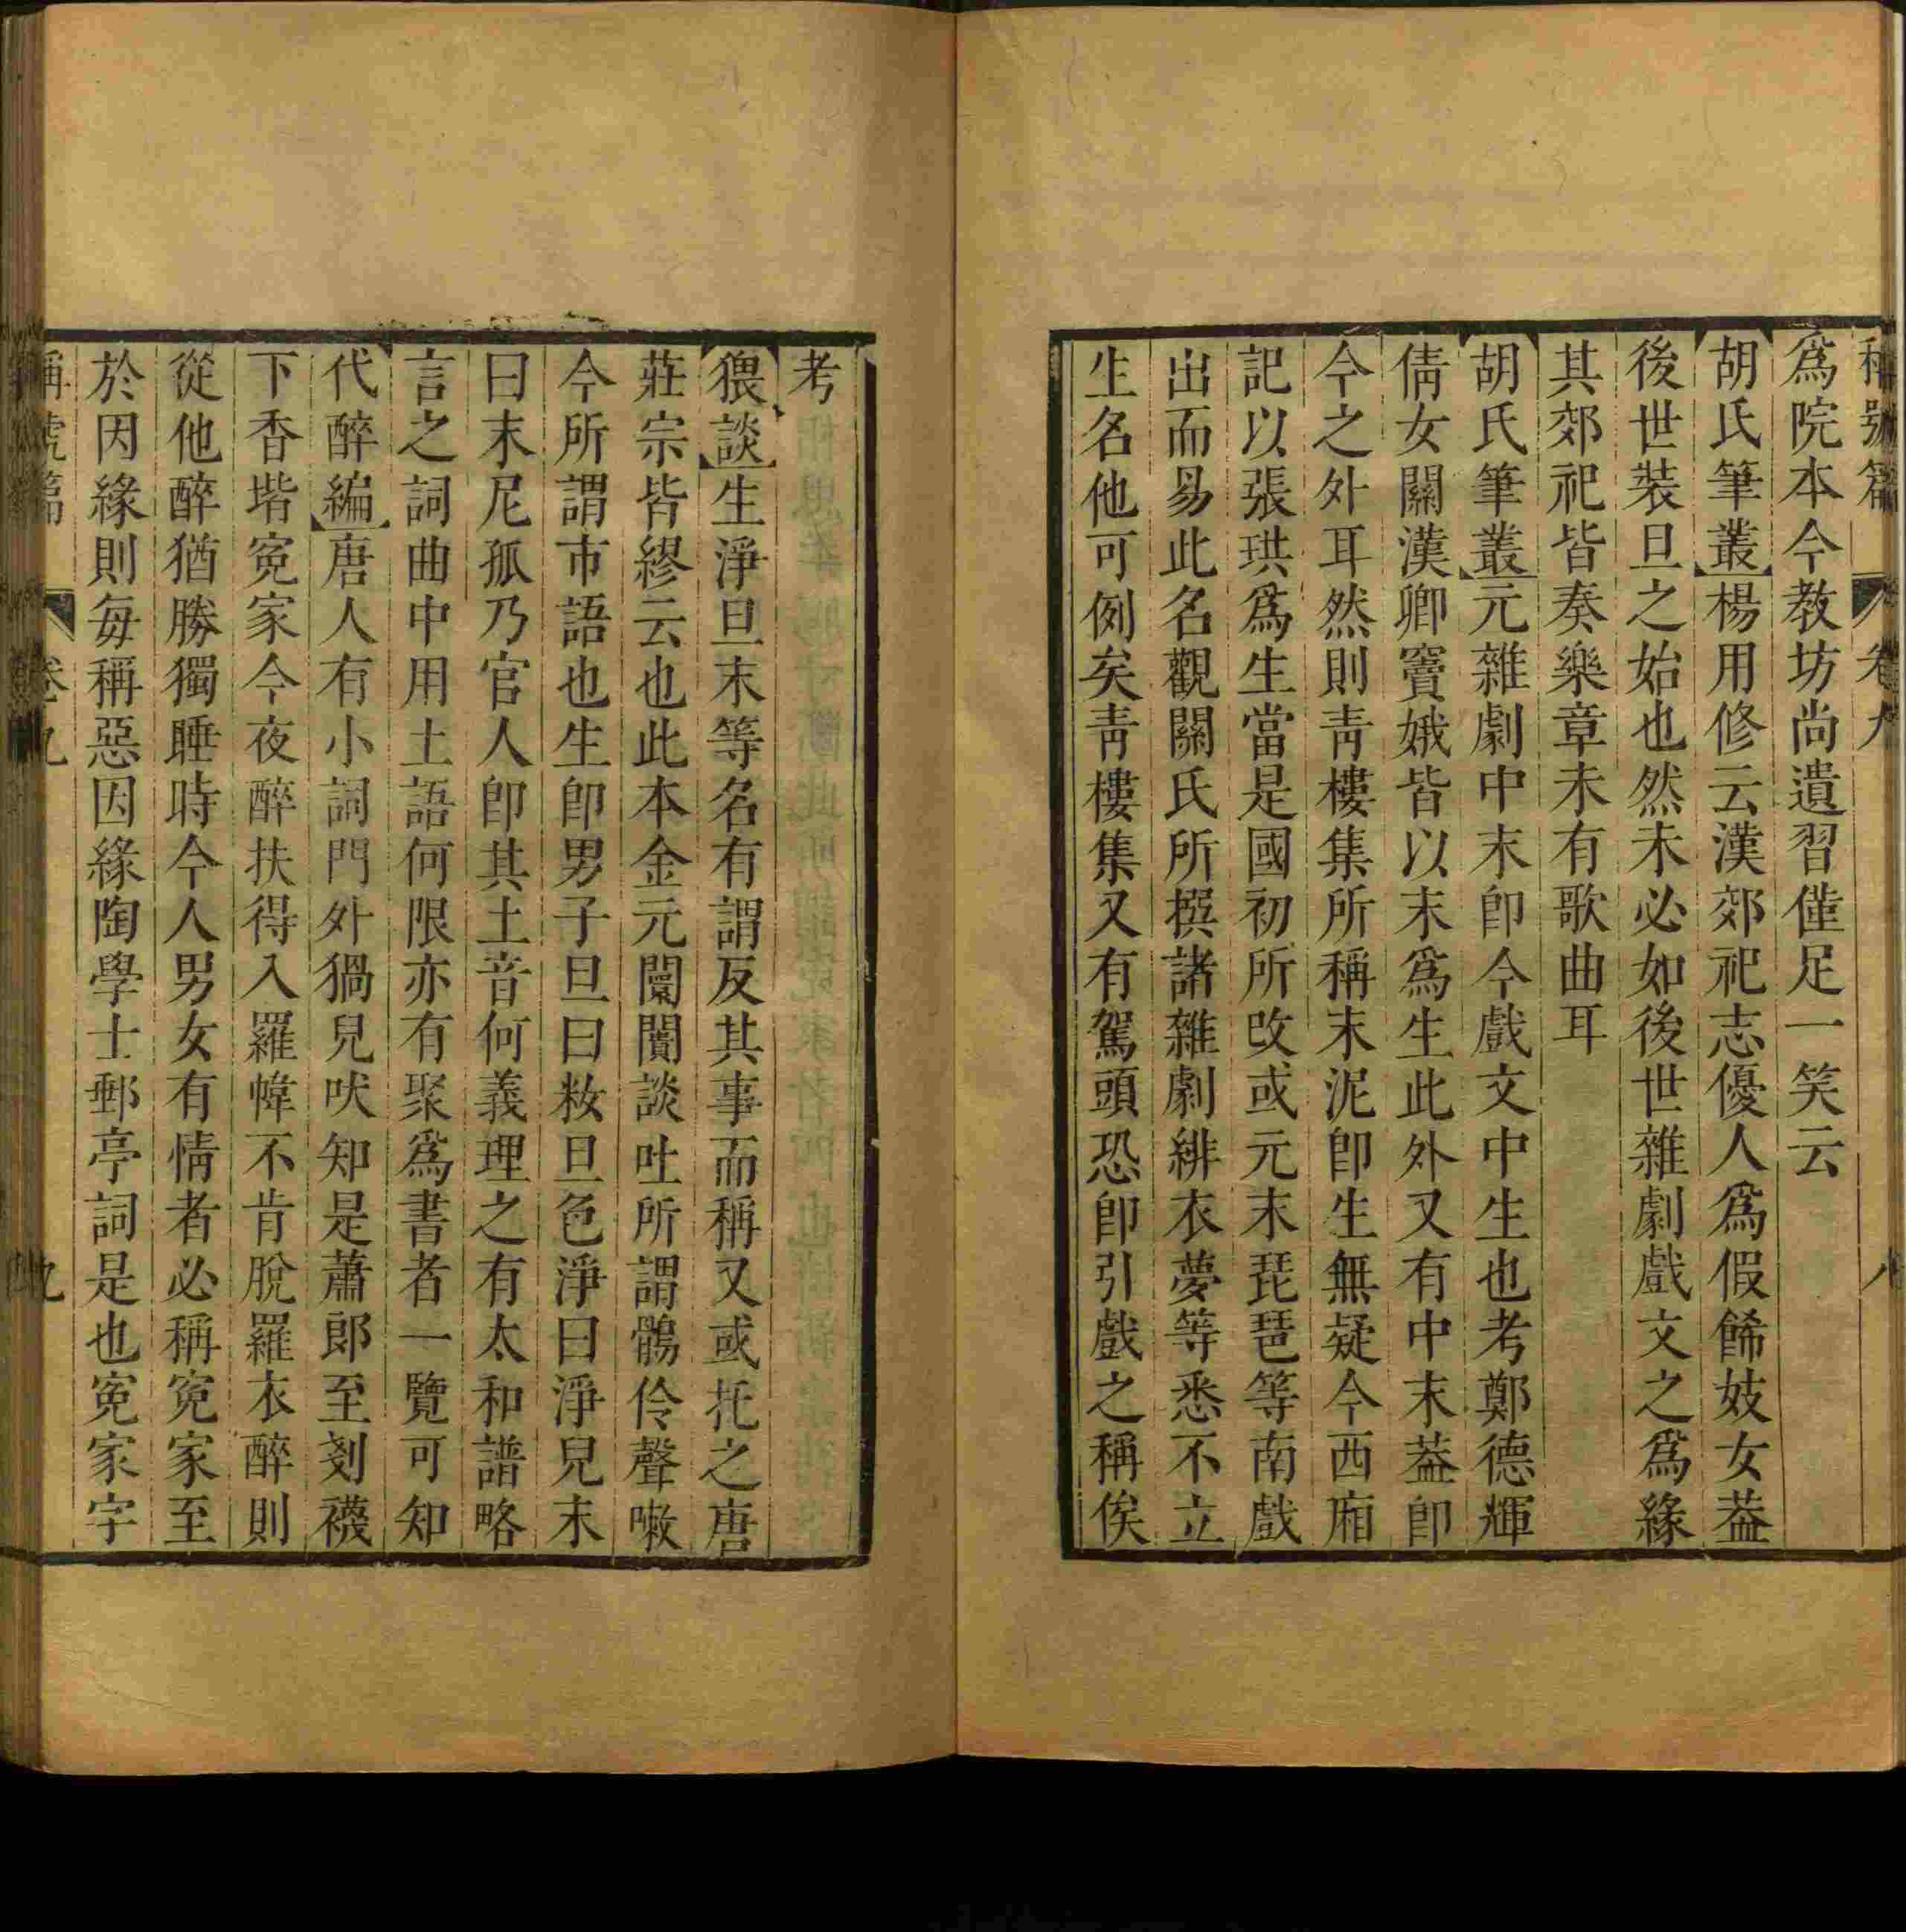 稱號篇 卷九 八
爲院本今教坊尚遺習僅足一笑云
胡氏筆叢楊用修云漢郊祀志優人爲假餙妓女葢
後世裝旦之始也然未必如後世雜劇戲文之爲緣
其郊祀皆奏樂章未有歌曲耳
胡氏筆叢元雜劇中末卽今戲文中生也考鄭德輝
倩女關漢卿竇娥皆以末爲生此外又有中末葢卽
今之外耳然則靑樓集所稱末泥卽生無疑今西廂
記以張珙爲生當是國初所改或元末琵琶等南戲
出而易此名觀關氏所撰諸雜劇緋衣夢等悉不立
生名他可例矣靑樓集又有駕頭恐卽引戲之稱俟
考
猥談生淨旦末等名有謂反其事而稱又或托之唐
莊宗皆繆云也此本金元闤闠談吐所謂鶻伶聲嗽
今所謂市語也生卽男子旦曰粧旦色淨曰淨兒末
曰末尼孤乃官人卽其土音何義理之有太和譜略
言之詞曲中用土語何限亦有聚爲書者一覽可知
代醉編唐人有小詞門外猧兒吠知是蕭郎至剗襪
下香堦寃家今夜醉扶得入羅幃不肯脫羅衣醉則
從他醉猶勝獨睡時今人男女有情者必稱寃家至
於因緣則每稱惡因緣陶學士郵亭詞是也寃家字
稱號篇 卷九 九